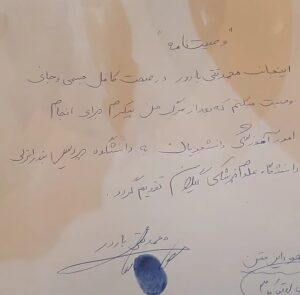 "وصیت‌نامه"
اینجانب محمدتقی بارور در صحت کامل جسمی و جانی
وصیت میکنم که بعد از مرگ من پیکرم برای انجام
امور آموزشی دانشجویان به دانشکده پردیس بندرانزلی
دانشگاه علوم پزشکی گیلان تقدیم گردد.
محمدتقی بارور
متن